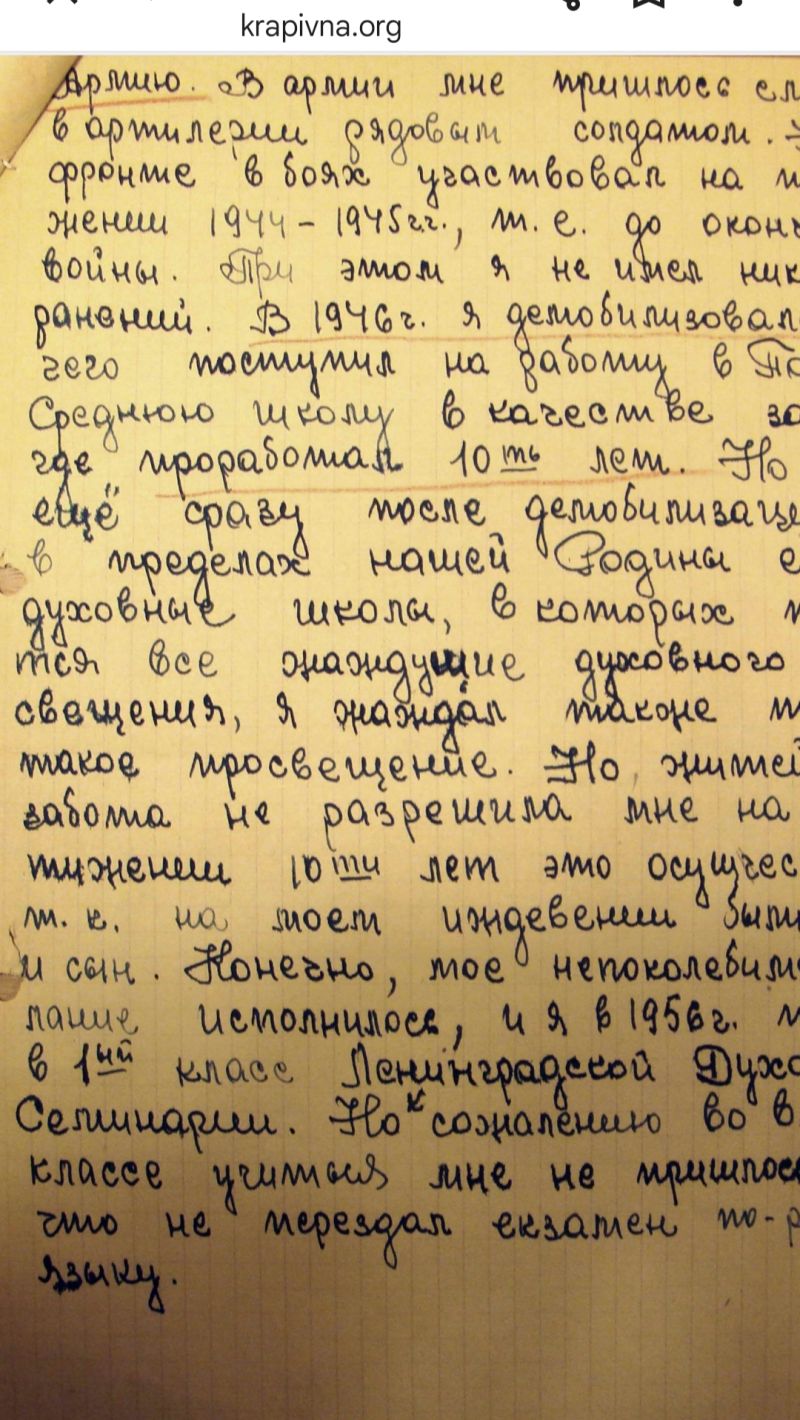 krapivna.org
Армию. В армии мне пришлось сл
в артилерии рядовым солдатом.
фронте в боях участвовал на п
жении 1944-1945г.г., т.е. до оконч
войны. При этом я не имел ник
ранений. В 1946г. я демобилизовал
чего поступил на работу в По
Среднюю школу в качестве за
где проработал 10ть лет. Но
ещё сразу после демобилизаце
в пределах нашей Родины е
духовные школы, в которых
тся все жаждущие духовного
свещения, я жаждал также
такое просвещение. Но житей
забота не разрешила мне на
тижении 10ти лет это осущес
т.к. на моем иждевении были
и сын. Конечно, мое непоколебим
лание исполнилось, и я в 1956г.
в 1ый класс Ленинградской Духо
Семинарии. Но к сожалению во в
классе учиться мне не пришлос
что не перездал екзамен по-р
языку.